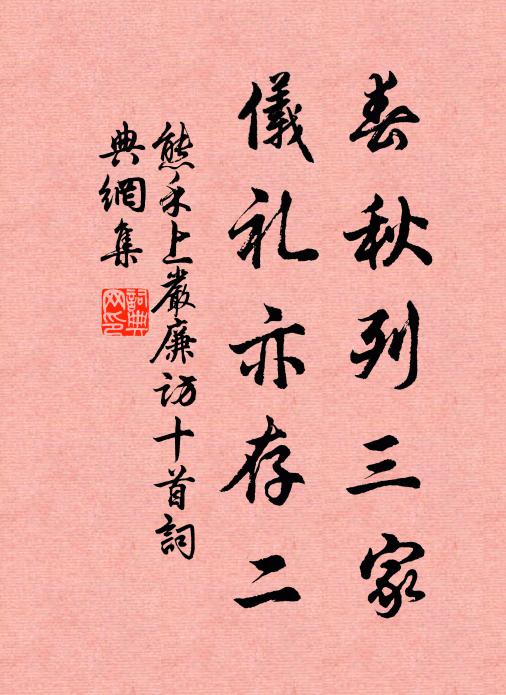 春秋列三家
儀礼亦存二
熊禾上嚴廉訪十首詞
典網集
詞典
网印